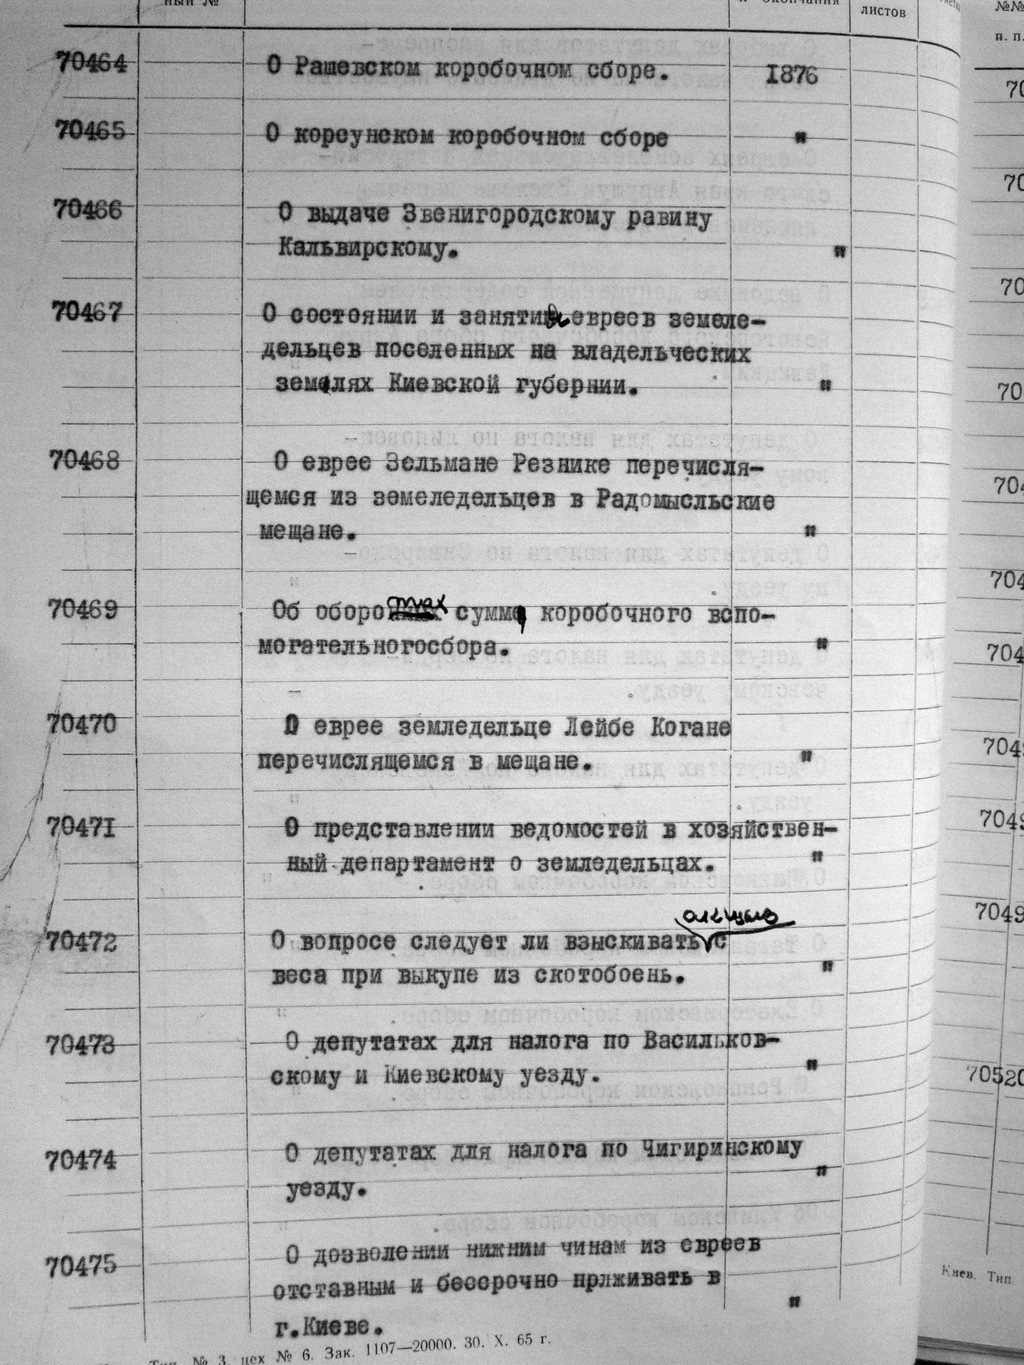 ный №
и окончания
листов
№№
п. п.
70464 О Рашевском коробочном сборе. I876
70465 О корсунском коробочном сборе "
70466 О выдаче Звенигородскому равину
Кальвирскому. "
70467 О состоянии и занятия евреев земле-
дельцев поселенных на владельческих
земелях Киевской губернии. "
70468 О еврее Зельмане Резнике перечисля-
щемся из земеледельцев в Радомысльские
мещане. "
70469 Об оборотных сумм коробочного вспо-
могательногосбора. "
70470 О еврее землeдельце Лейбе Когане
перечислящемся в мещане. "
7047I О представлении ведомостей в хозяйствен-
ный департамент о земледельцах. "
70472 О вопросе следует ли взыскивать с
веса при выкупе из скотобоень. "
70473 О депутатах для налога по Васильков-
скому и Киевскому уезду. "
70474 О депутатах для налога по Чигиринскому
уезду. "
70475 О дозволении нижним чинам из евреев
отставным и бессрочно прлживать в
г.Киеве. "
Тип. № 3, цех № 6. Зак. 1107—20000. 30. X. 65 г.
70520
Киев. Тип